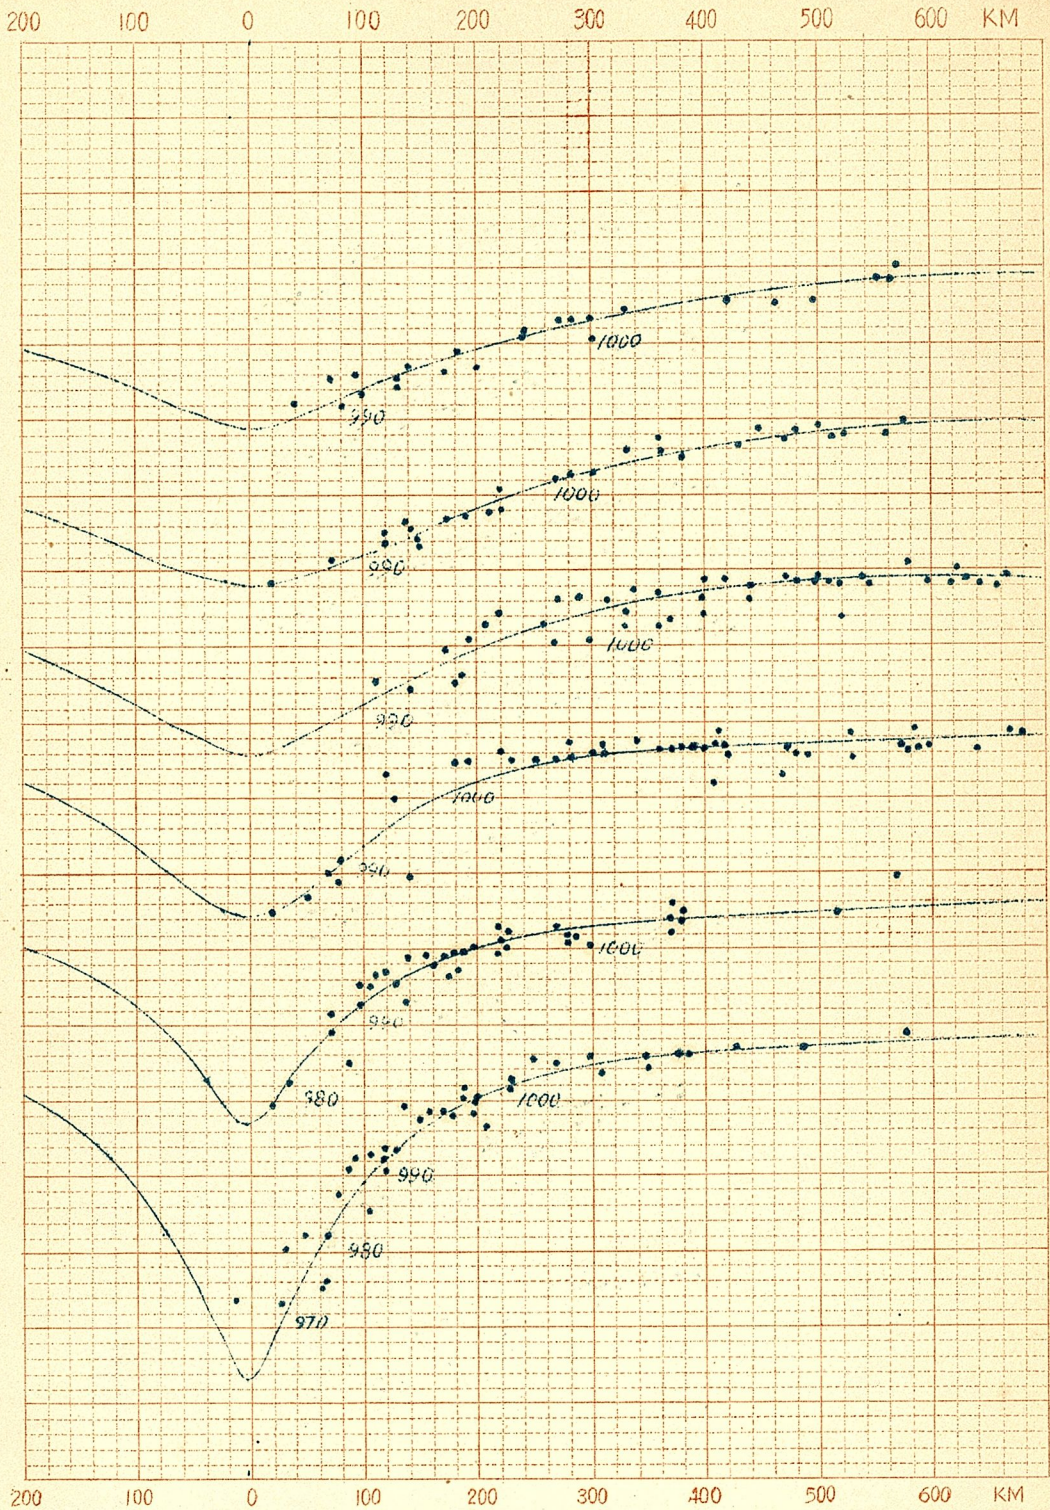 200 100 0 100 200 300 400 500 600 KM
1000
990
1000
990
1000
990
1000
990
1000
990
980
1000
990
980
970
200 100 0 100 200 300 400 500 600 KM